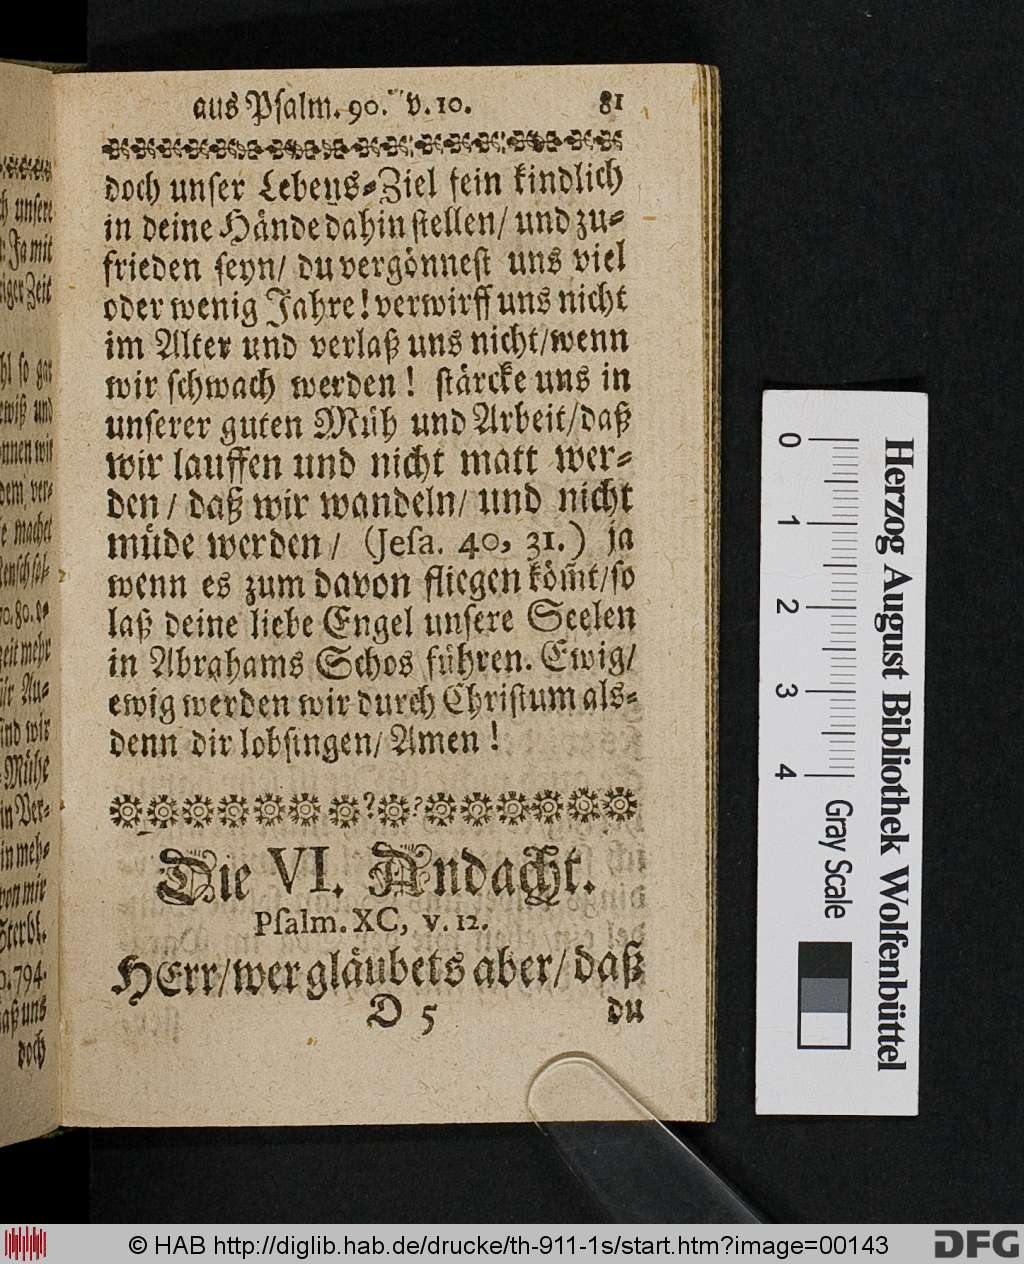 aus Psalm. 90. v. 10. 81
doch unser Lebens-Ziel fein kindlich
in deine Hände dahin stellen/ und zu-
frieden seyn/ du vergönnest uns viel
oder wenig Jahre! verwirff uns nicht
im Alter und verlaß uns nicht/wenn
wir schwach werden! stärcke uns in
unserer guten Müh und Arbeit/daß
wir lauffen und nicht matt wer-
den/ daß wir wandeln/ und nicht
müde werden/ (Jesa. 40, 31.) ja
wenn es zum davon fliegen köm̃t/so
laß deine liebe Engel unsere Seelen
in Abrahams Schos führen. Ewig/
ewig werden wir durch Christum als-
denn dir lobsingen/ Amen!
Die VI. Andacht.
Psalm. XC, v. 12.
HErr/wer gläubets aber/ daß
D 5 du
unsere
Ja mit
Zeit
so gar
und
wir
ver-
machet
70. 80.
mehr
Au-
wir
Mühe
Ver-
meh-
von mir
Sterbl.
794.
uns
doch
0 1 2 3 4
Gray Scale
Herzog August Bibliothek Wolfenbüttel
© HAB http://diglib.hab.de/drucke/th-911-1s/start.htm?image=00143
DFG